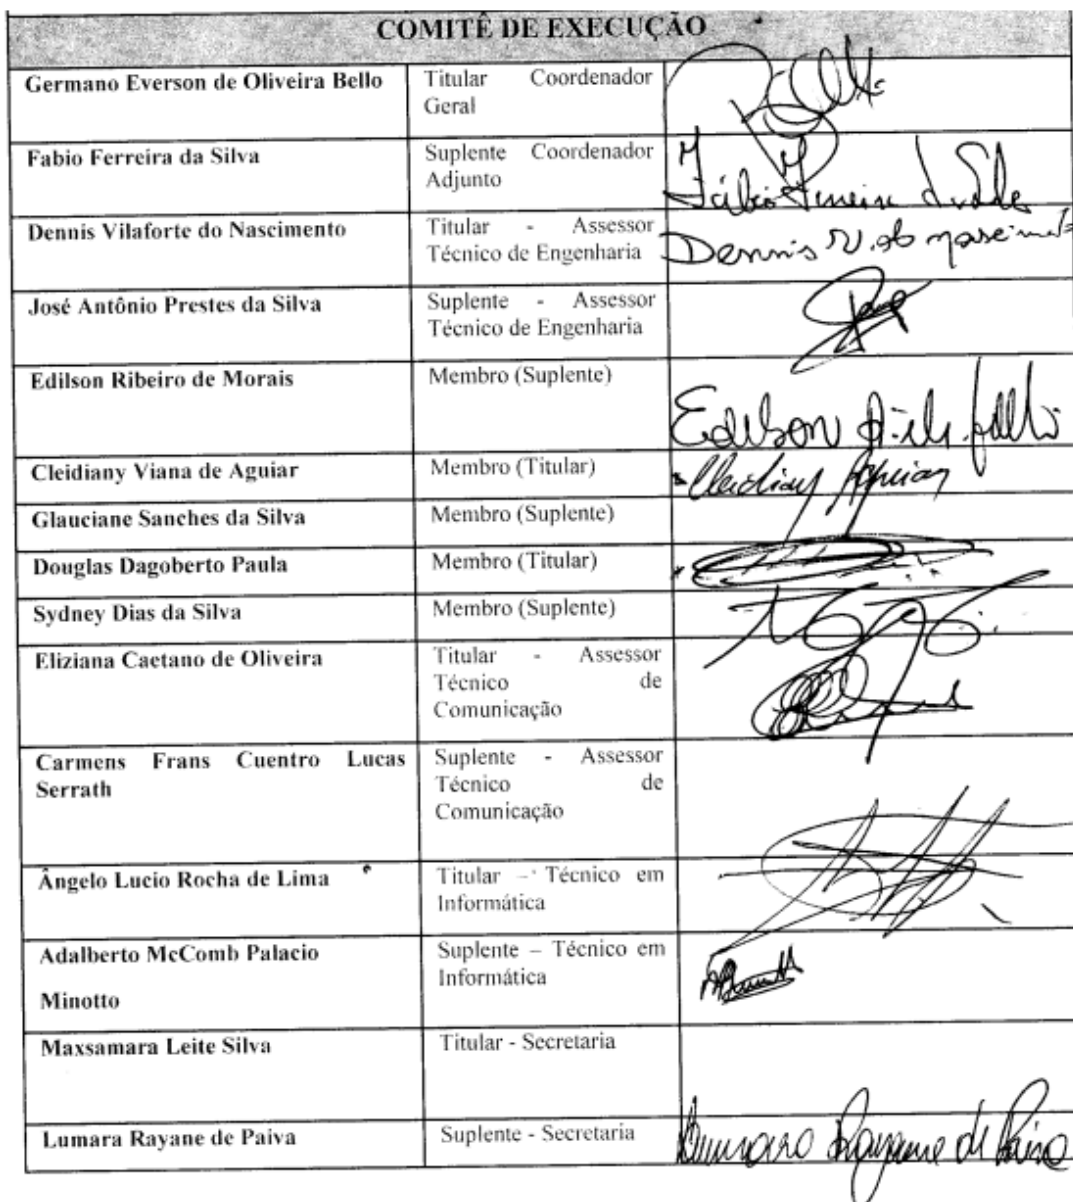 COMITÊ DE EXECUÇÃO
Germano Everson de Oliveira Bello
Titular Coordenador
Geral
Fabio Ferreira da Silva
Suplente Coordenador
Adjunto
Fábio Ferreira da Silva
Dennis Vilaforte do Nascimento
Titular - Assessor
Técnico de Engenharia
Dennis V. do nascimento
José Antônio Prestes da Silva
Suplente - Assessor
Técnico de Engenharia
Edilson Ribeiro de Morais
Membro (Suplente)
Edilson
Cleidiany Viana de Aguiar
Membro (Titular)
Cleidiany Aguiar
Glauciane Sanches da Silva
Membro (Suplente)
Douglas Dagoberto Paula
Membro (Titular)
Sydney Dias da Silva
Membro (Suplente)
Eliziana Caetano de Oliveira
Titular - Assessor
Técnico de
Comunicação
Carmens Frans Cuentro Lucas
Serrath
Suplente - Assessor
Técnico de
Comunicação
Ângelo Lucio Rocha de Lima
Titular – Técnico em
Informática
Adalberto McComb Palacio
Minotto
Suplente – Técnico em
Informática
Maxsamara Leite Silva
Titular - Secretaria
Lumara Rayane de Paiva
Suplente - Secretaria
Lumara Rayane de Paiva